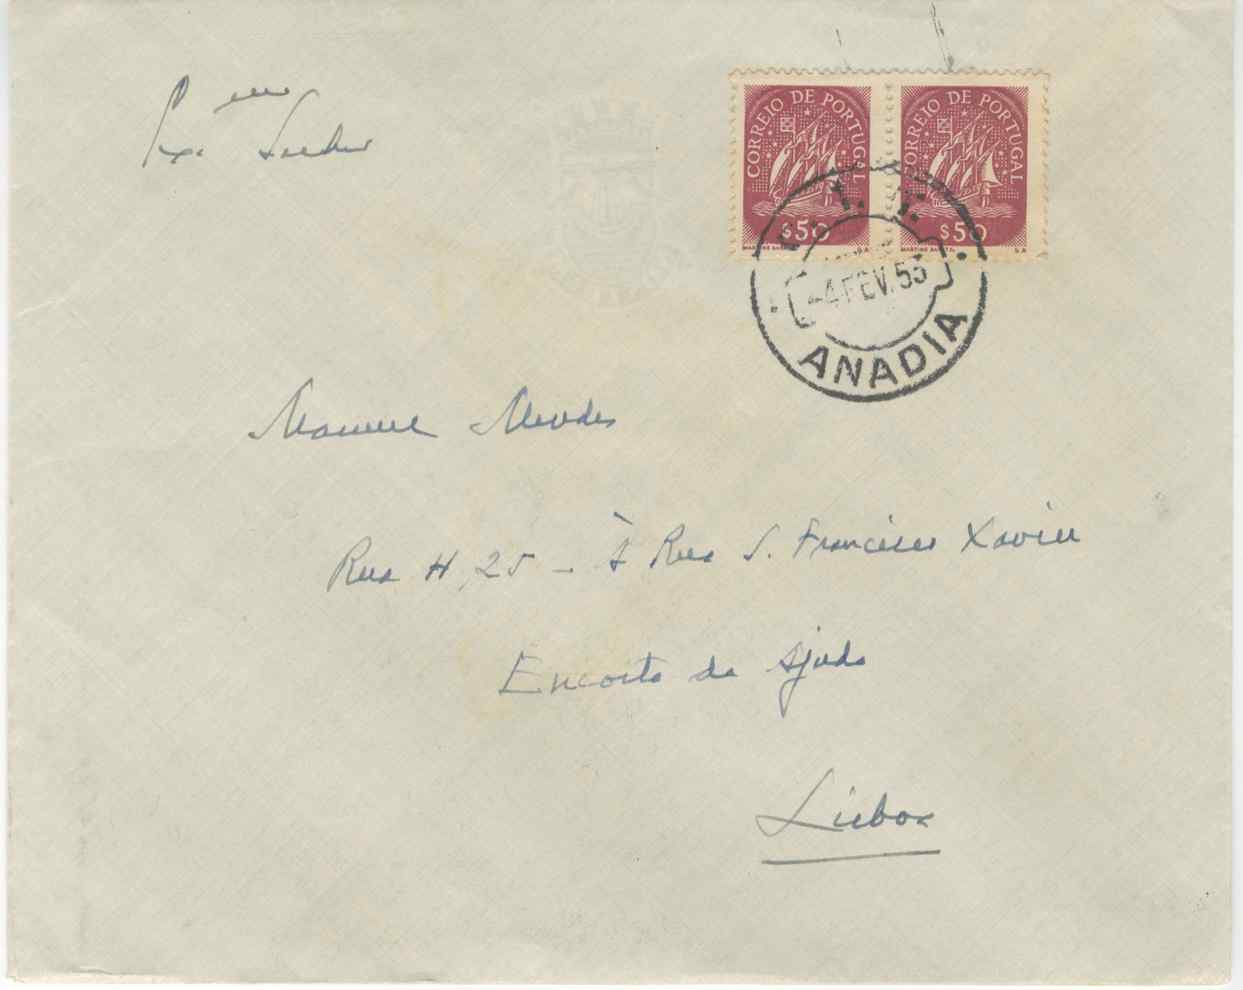 Exmo Senhor
CORREIO DE PORTUGAL
$50
CORREIO DE PORTUGAL
$50
-4 FEV. 55
ANADIA
Manuel Mendes
Rua H, 25 - à Rua S. Francisco Xavier
Encosta da Ajuda
Lisboa